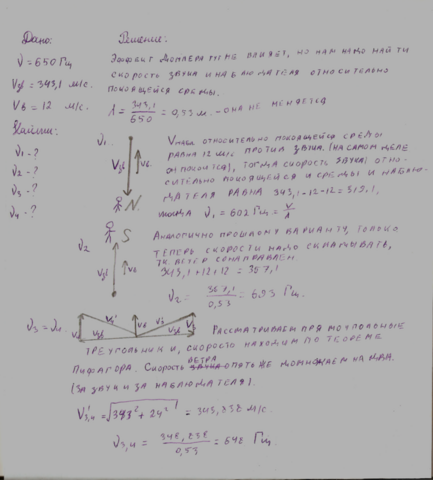 Дано:
Решение:
ν = 650 Гц
Vв = 12 м/с.
Найти:
ν₁ - ?
ν₂ - ?
ν₃ - ?
ν₄ - ?
Эффект Доплера тут не влияет, но нам надо найти
скорость звука и наблюдателя относительно
покоящейся среды.
λ = 343,1/650 = 0,53 м. - она не меняется
ν₁.
Vнабл относительно покоящейся среды
равна 12 м/с против звука. (на самом деле
он покоится), тогда скорость звука отно-
сительно покоящейся среды и наблю-
дателя равна 343,1-12-12=319,1,
тогда ν₁ = 602 Гц = V/λ
N
S
ν₂
Аналогично прошлому варианту, только
теперь скорости надо складывать,
т.к. ветер сонаправлен.
343,1+12+12 = 367,1
ν₂ = 367,1/0,53 = 693 Гц.
ν₃ = ν₄
Рассматриваем прямоугольные
треугольники, скорость находим по теореме
Пифагора. Скорость ветра опять же домножаем на два.
(за звук и за наблюдателя).
V'₃,₄ = √343²+24² = 343,838 м/с.
ν₃,₄ = = 648 Гц.